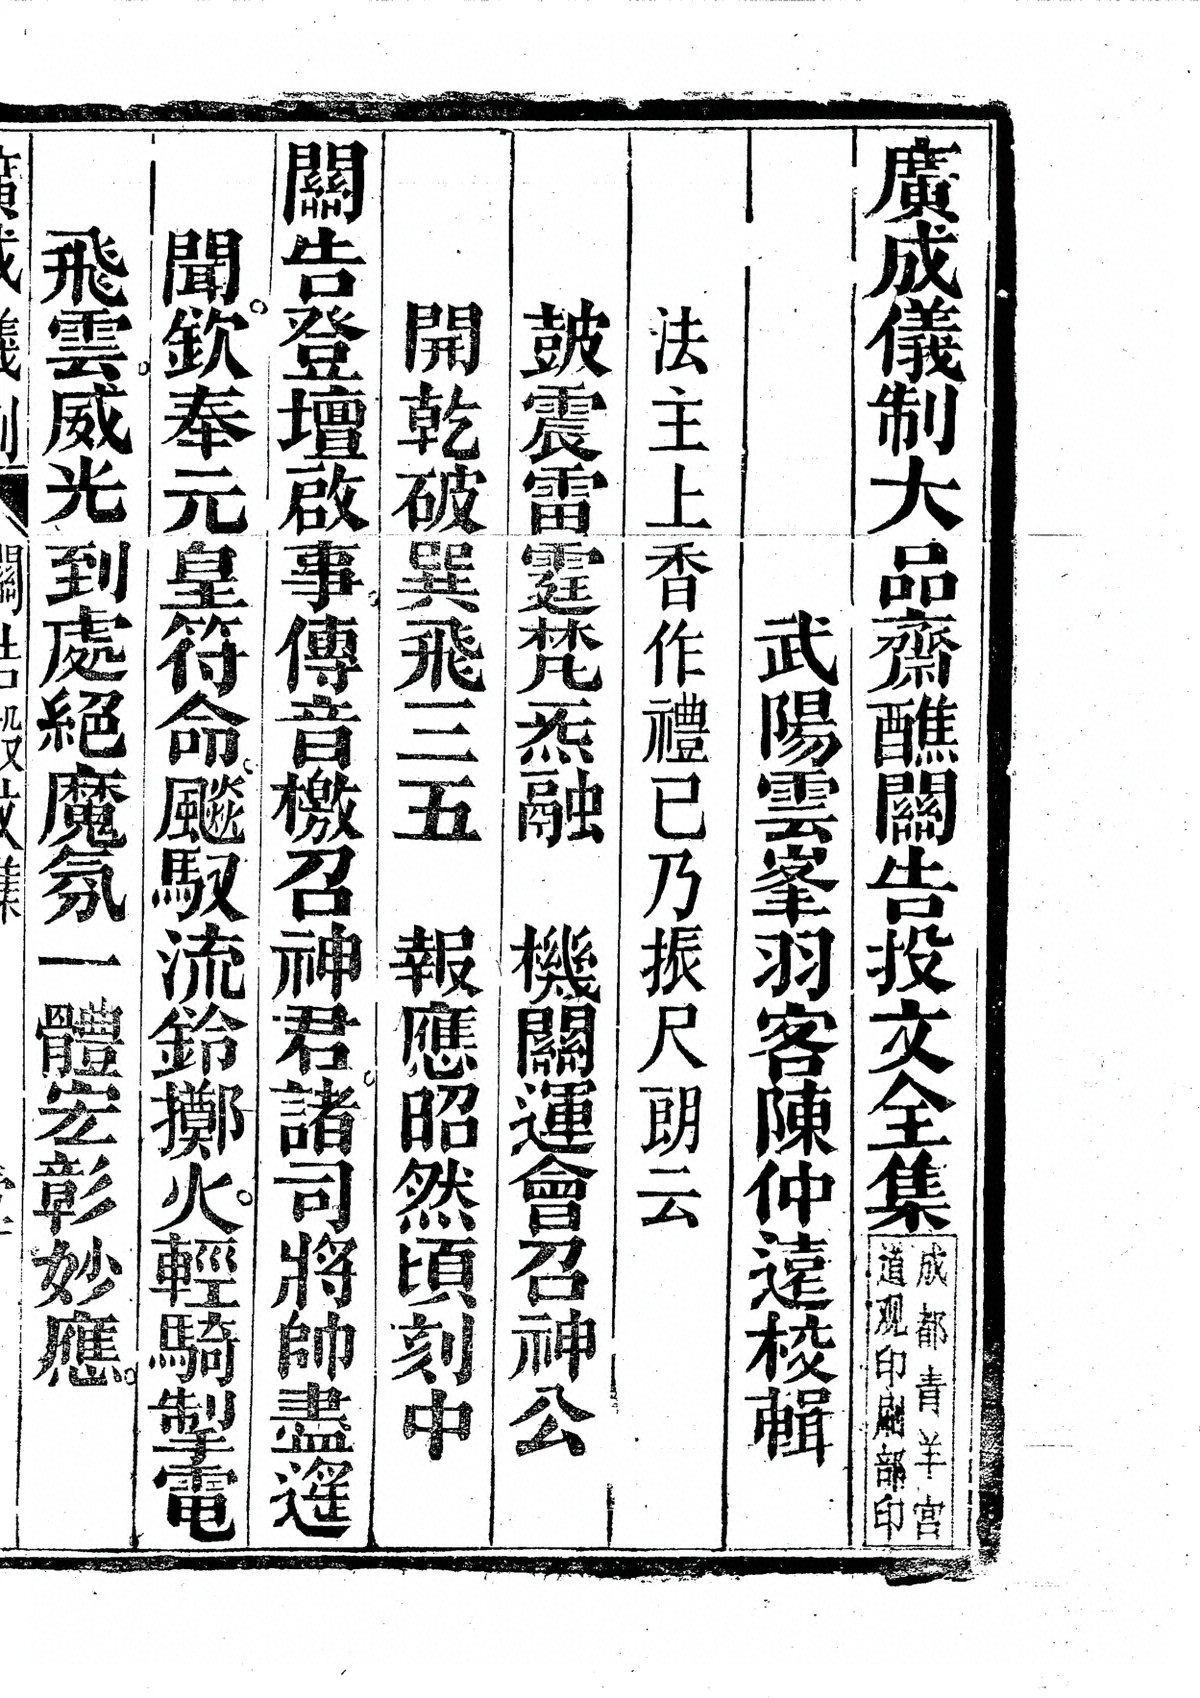 廣成儀制大品齋醮關告投文全集
成都青羊宮
道观印刷部印
武陽雲峯羽客陳仲遠校輯
法主上香作禮已乃振尺朗云
鼓震雷霆梵炁融　機關運會召神公
開乾破巽飛三五　報應昭然頃刻中
關告登壇啟事傳音檄召神君諸司將帥盡遙
聞欽奉元皇符命飈馭流鈴擲火輕騎掣電
飛雲威光到處絕魔氛一體宏彰妙應
廣成儀制
關告投文集